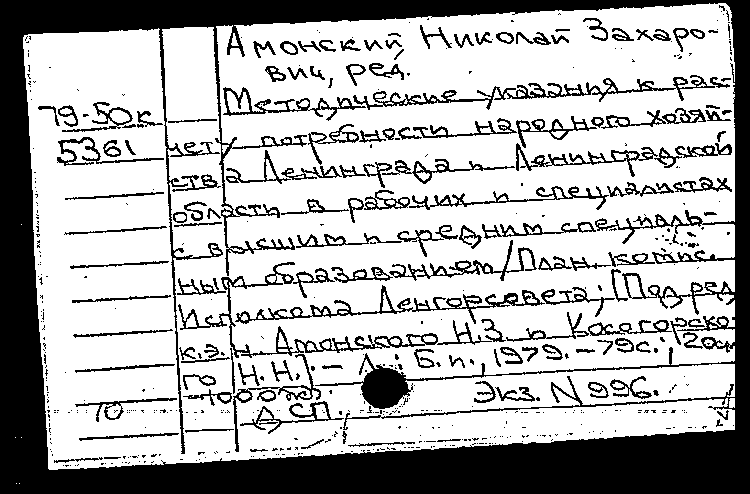 Амонский Николай Захаро-
вич, ред.
79-50к
5361
Методические указания к рас-
чету потребности народного хозяй-
ства Ленинграда и Ленинградской
области в рабочих и специалистах
с высшим и средним специаль-
ным образованием/План. комис.
Исполкома Ленгорсовета; [Под ред.
к.э.н. Амонского Н.З. и Косогорско-
го Н.Н.]. - Л.: Б.и., 1979. - 79с.; 20см
-1000экз. Экз. N 996.
10
ДСП.